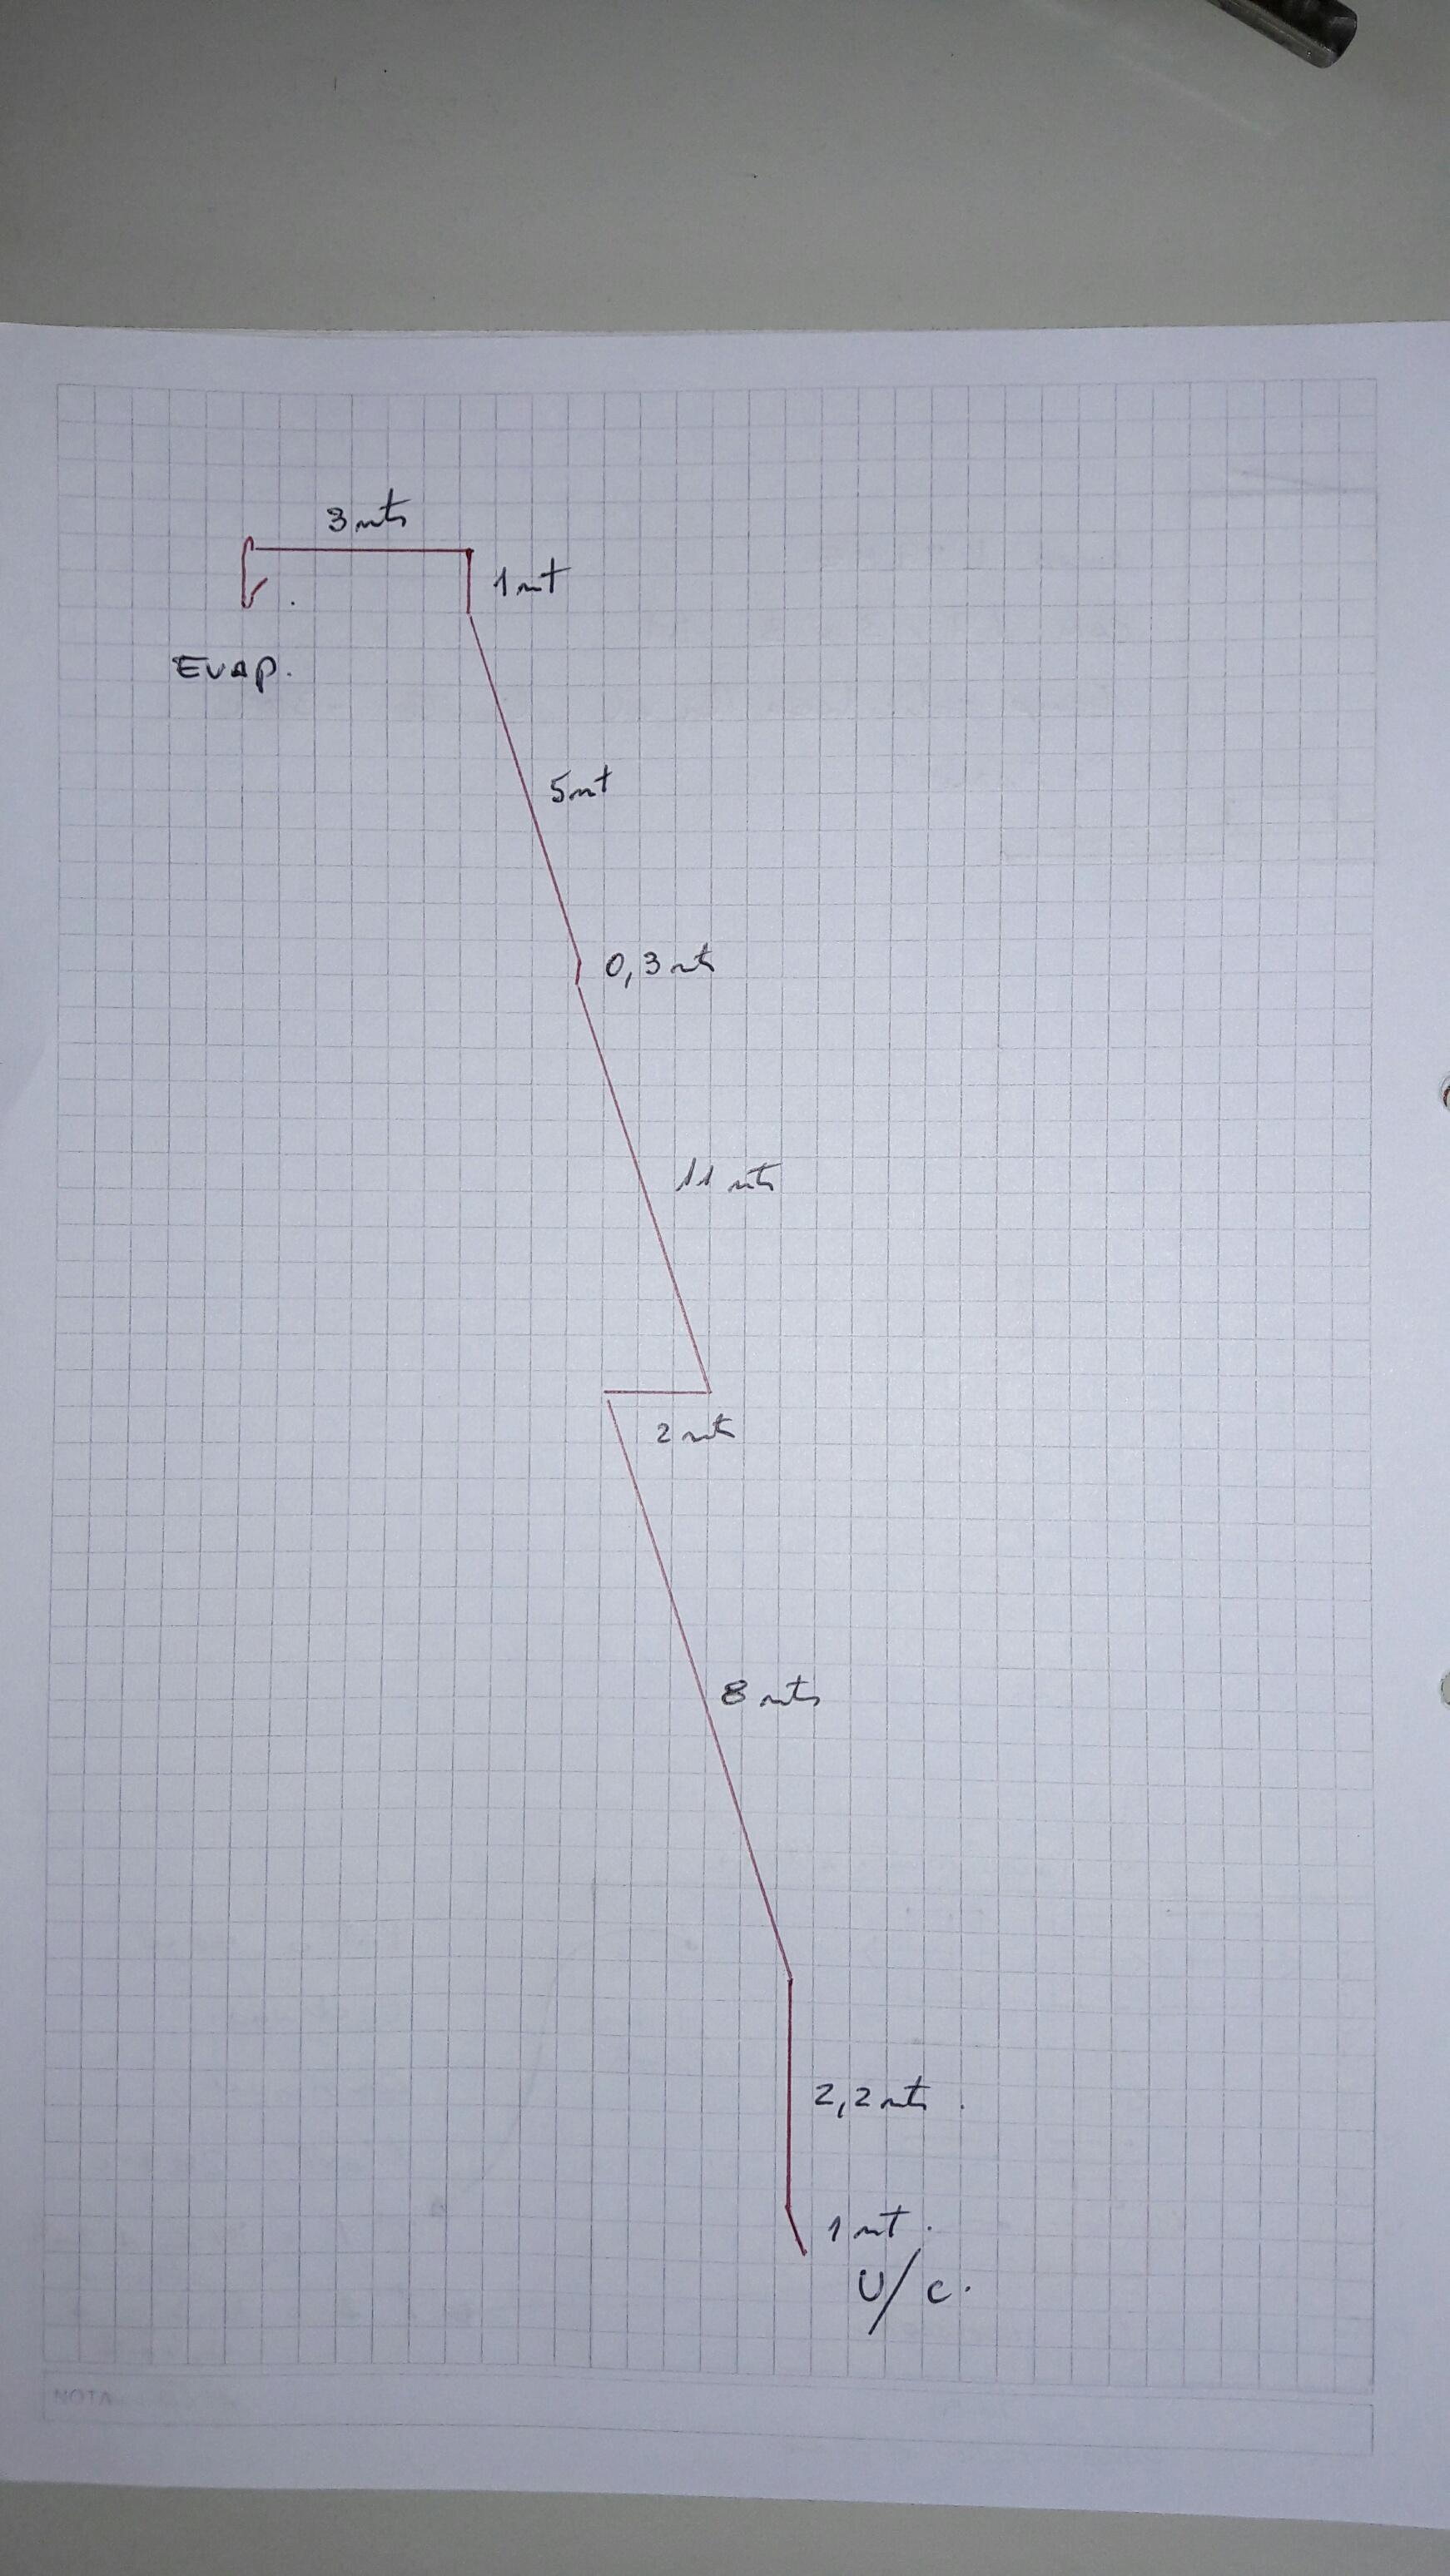 3 mts
1 mt
EVAP.
5 mt
0,3 mts
11 mts
2 mts
8 mts
2,2 mts.
1 mt.
U/C.
NOTA